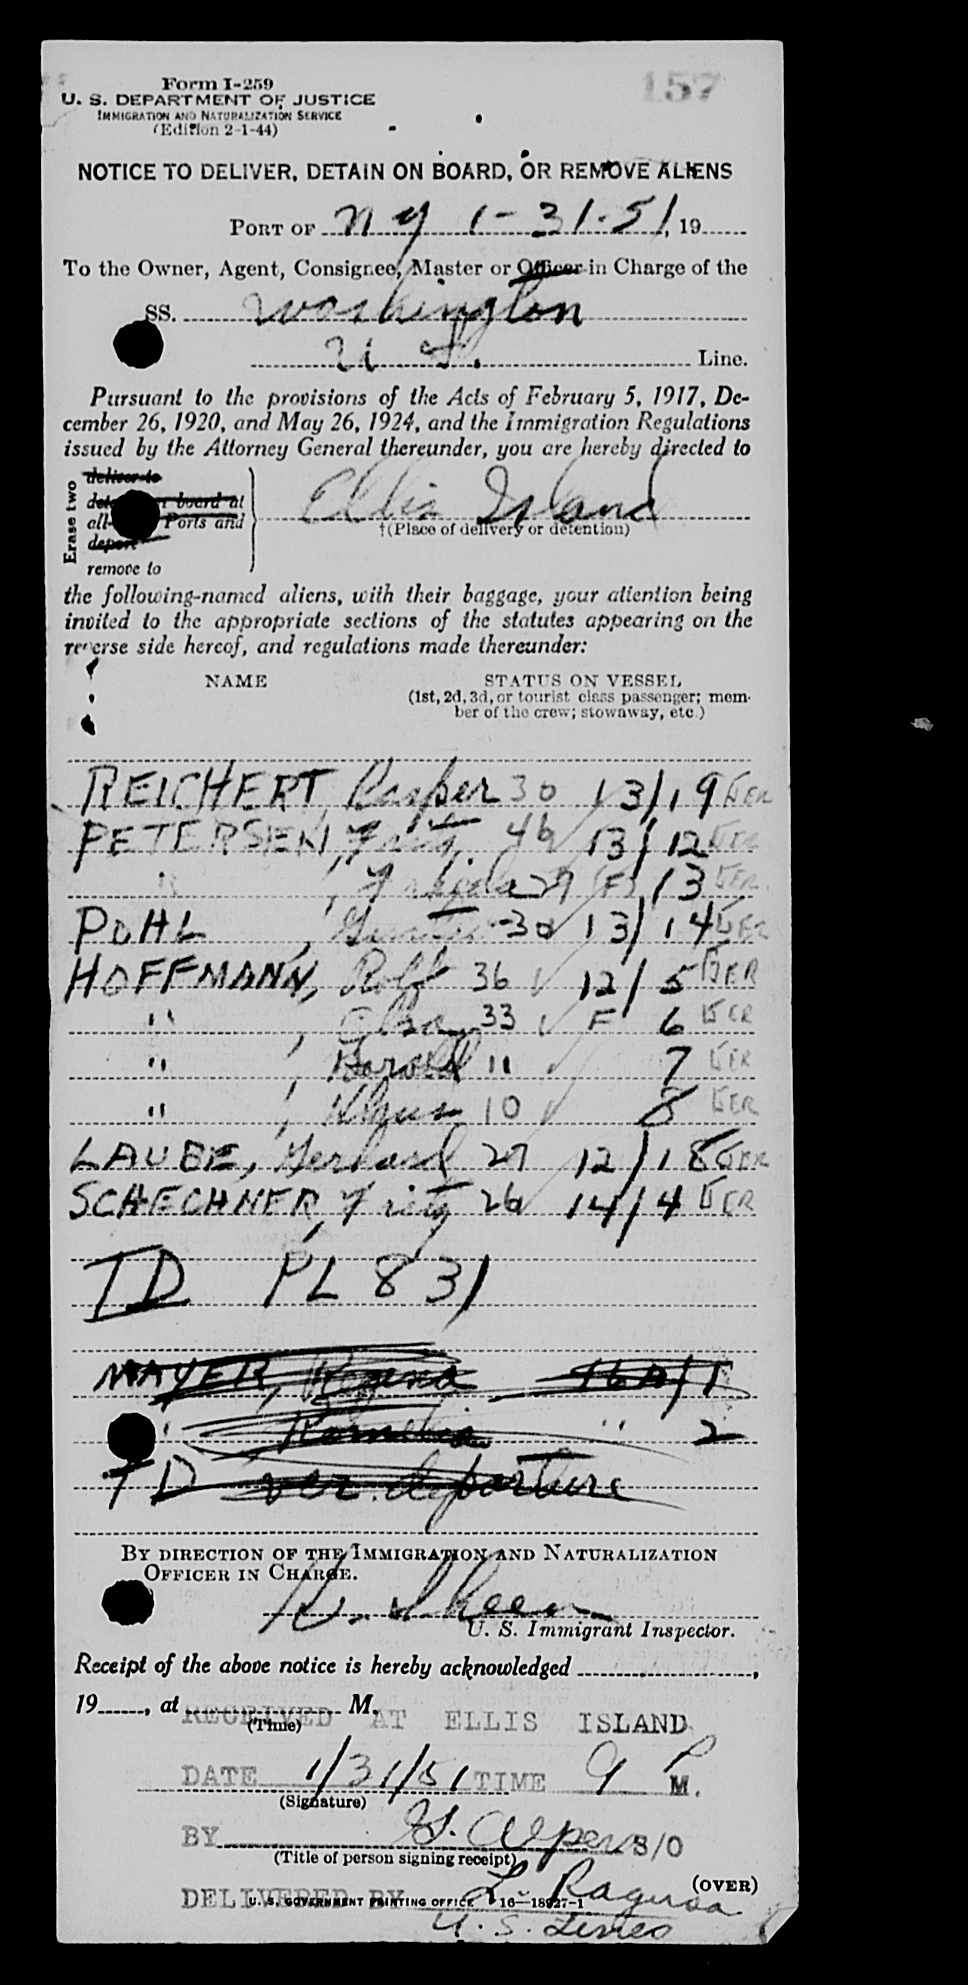 157
Form I-259
U. S. DEPARTMENT OF JUSTICE
IMMIGRATION AND NATURALIZATION SERVICE
(Edition 2-1-44)
NOTICE TO DELIVER, DETAIN ON BOARD, OR REMOVE ALIENS
PORT OF NY 1-31-51, 19
To the Owner, Agent, Consignee, Master or Officer in Charge of the
SS. Washington
U S. Line.
Pursuant to the provisions of the Acts of February 5, 1917, De-
cember 26, 1920, and May 26, 1924, and the Immigration Regulations
issued by the Attorney General thereunder, you are hereby directed to
Erase two
deliver to
board at
all Ports and
deport
remove to
Ellis Island
†(Place of delivery or detention)
the following-named aliens, with their baggage, your attention being
invited to the appropriate sections of the statutes appearing on the
reverse side hereof, and regulations made thereunder:
NAME STATUS ON VESSEL
(1st, 2d, 3d, or tourist class passenger; mem-
ber of the crew; stowaway, etc.)
REICHERT, 30 13/19 GER
PETERSEN, Fritz 46 13/12 GER
" , 29 (F) 13 GER
POHL , 30 13/14 GER
HOFFMANN, Rolf 36 12/5 GER
" , Elsa 33 F 6 GER
" , Harold 11 7 GER
" , Klaus 10 8 GER
LAUBE, Gerhard 27 12/18 GER
SCHECHNER, Fritz 26 14/4 GER
TD PL 831
MAYER,
" " 2
TD ver. departure
BY DIRECTION OF THE IMMIGRATION AND NATURALIZATION
OFFICER IN CHARGE.
U. S. Immigrant Inspector.
Receipt of the above notice is hereby acknowledged ,
19 , at M.
(Time)
RECEIVED AT ELLIS ISLAND
DATE 1/31/51 TIME 9 P M.
(Signature)
BY S/O
(Title of person signing receipt)
(OVER)
DELIVERED BY L.
U. S. GOVERNMENT PRINTING OFFICE 16—18927-1
U. S. Lines